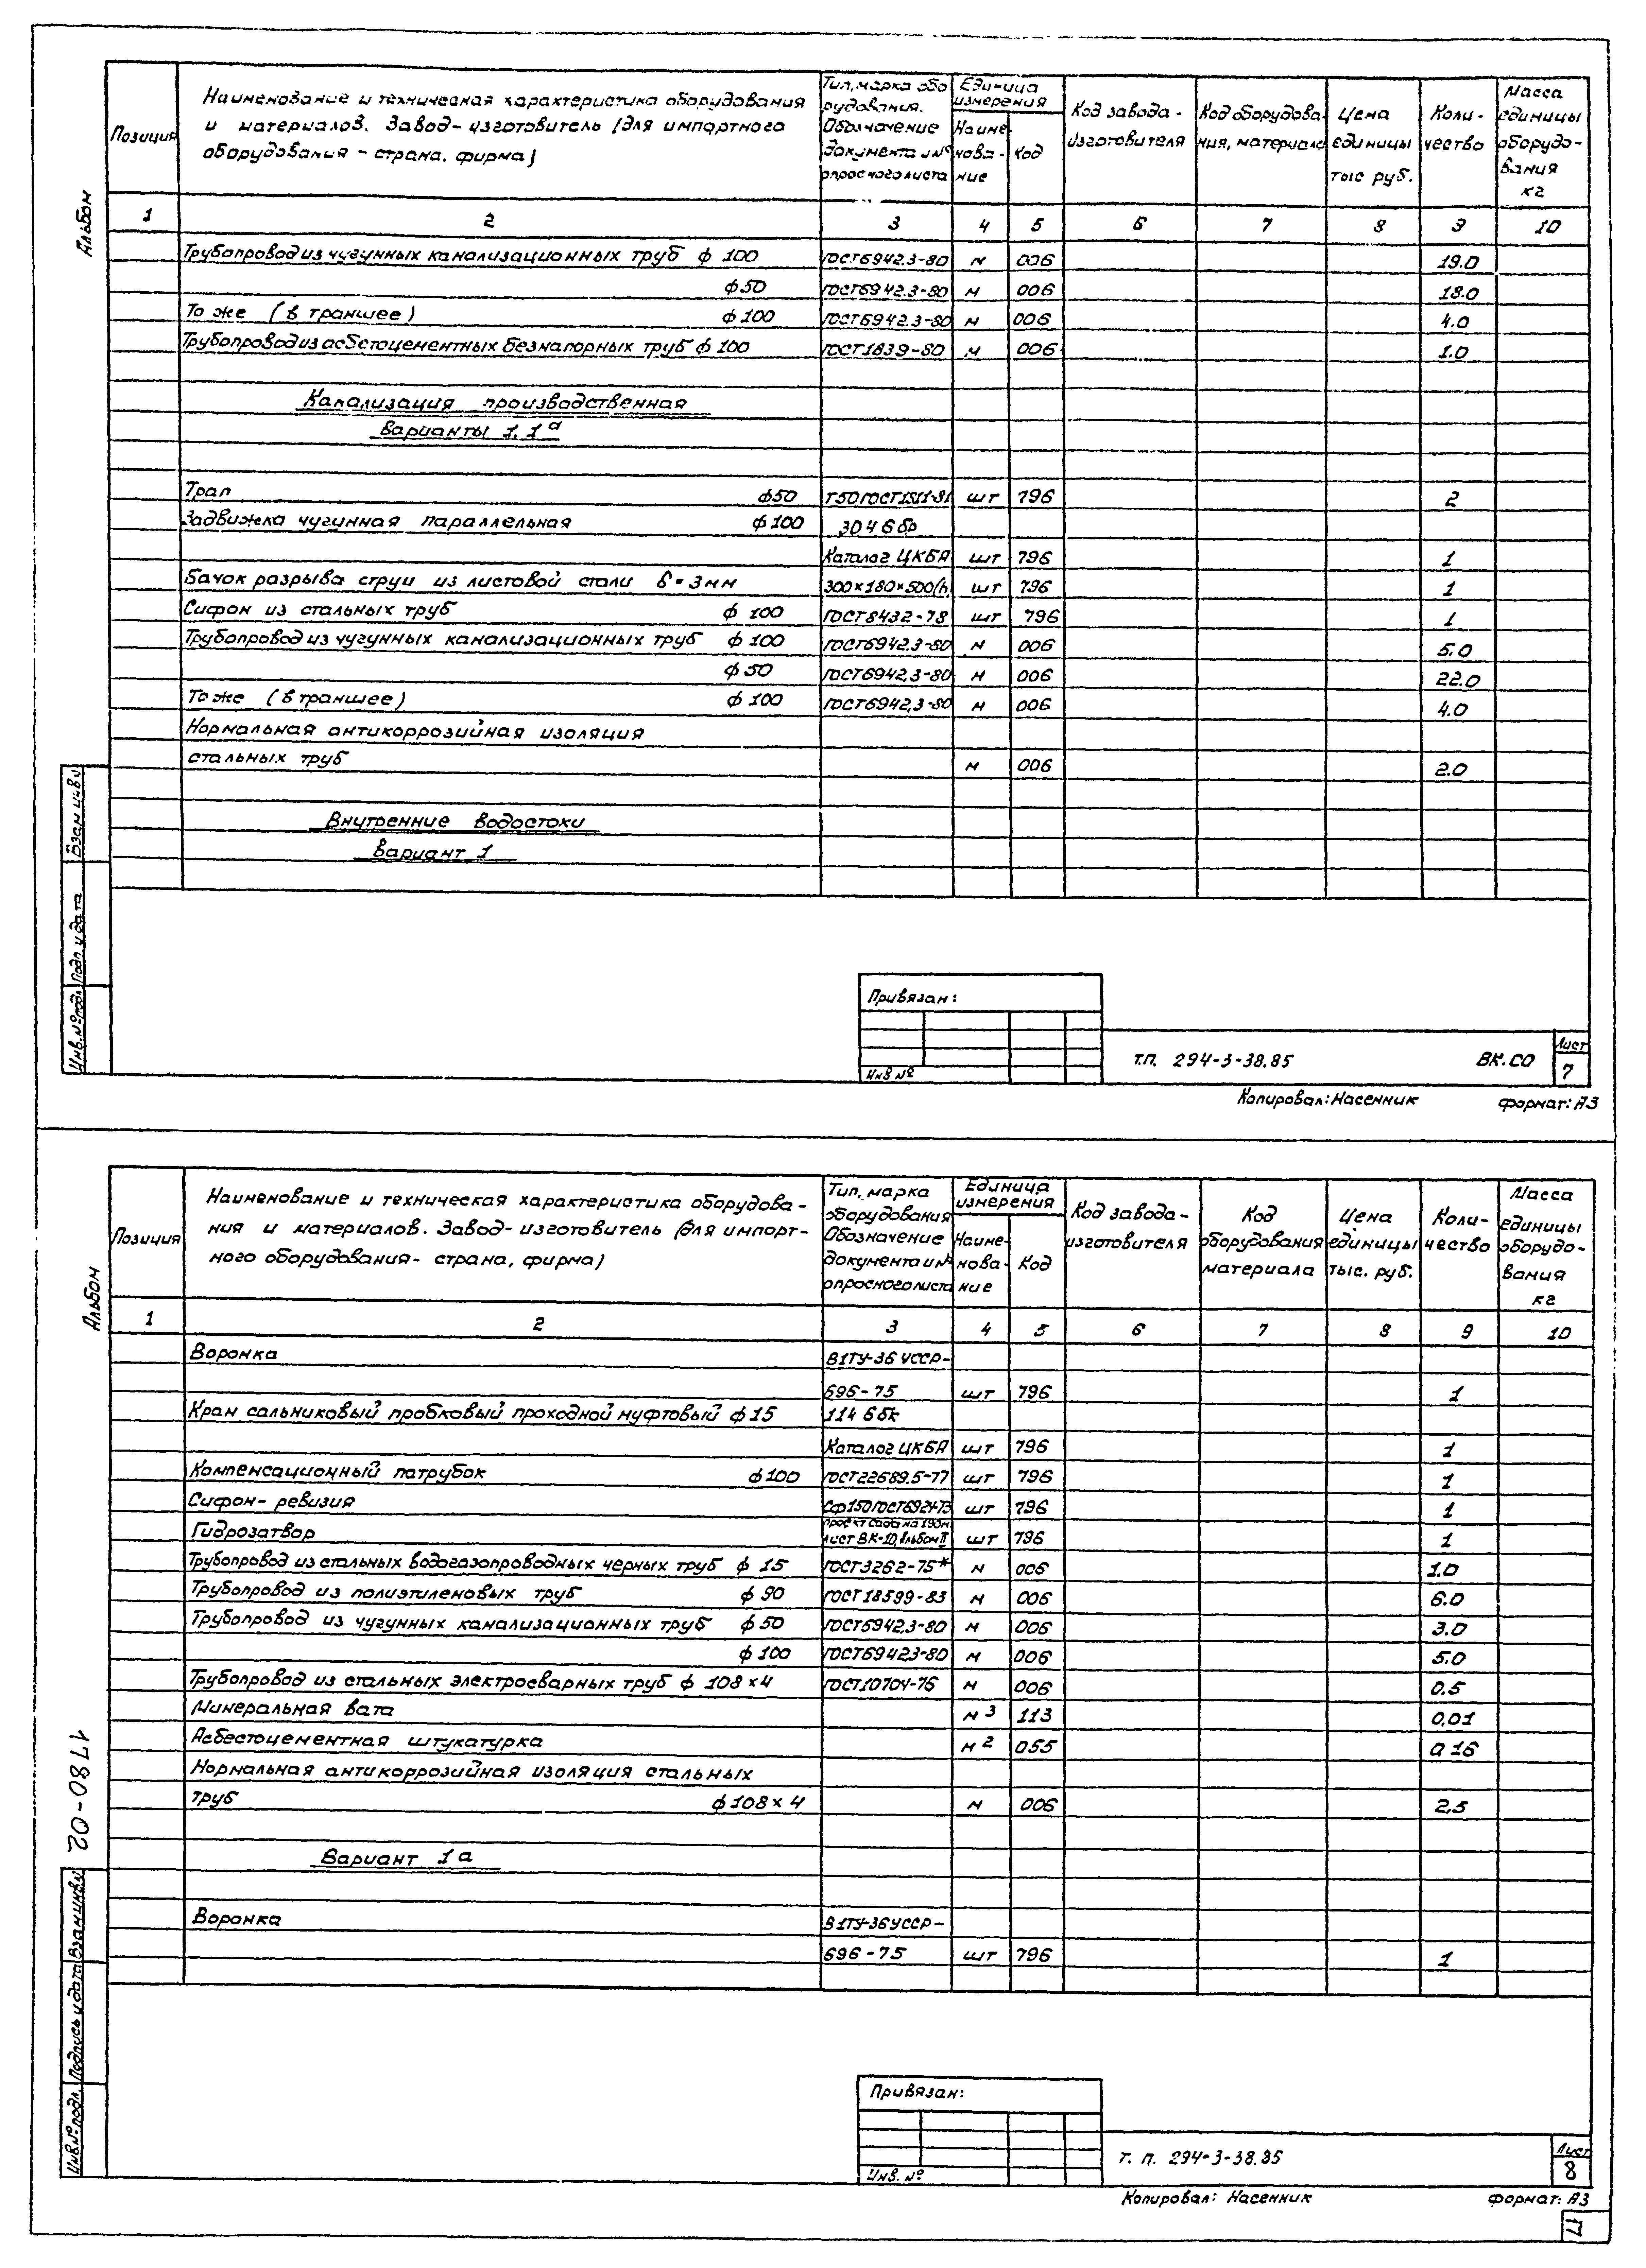 Альбом
Позиция
Наименование и техническая характеристика оборудования
и материалов. Завод-изготовитель (для импортного
оборудования - страна, фирма)
Тип, марка обо
рудования.
Обозначение
документа и №
опросного листа
Единица
измерения
Наиме-
нова-
ние
Код
Код завода-
изготовителя
Код оборудова-
ния, материала
Цена
единицы
тыс руб.
Коли-
чество
Масса
единицы
оборудо-
вания
кг
1 2 3 4 5 6 7 8 9 10
Трубопровод из чугунных канализационных труб ф 100 ГОСТ6942.3-80 м 006 19.0
ф50 ГОСТ6942.3-80 м 006 18.0
То же (в траншее) ф 100 ГОСТ6942.3-80 м 006 4.0
Трубопровод из асбестоцементных безнапорных труб ф 100 ГОСТ1839-80 м 006 1.0
Канализация производственная
Варианты 1, 1а
Трап ф50 Т50 ГОСТ1811-81 шт 796 2
Задвижка чугунная параллельная ф 100 30ч6бр
Каталог ЦКБА шт 796 1
Бачок разрыва струи из листовой стали б=3мм 300×180×500(h) шт 796 1
Сифон из стальных труб ф 100 ГОСТ8432-78 шт 796 1
Трубопровод из чугунных канализационных труб ф 100 ГОСТ6942.3-80 м 006 5.0
ф 50 ГОСТ6942.3-80 м 006 22.0
То же (в траншее) ф 100 ГОСТ6942.3-80 м 006 4.0
Нормальная антикоррозийная изоляция
стальных труб м 006 2.0
Внутренние водостоки
Вариант 1
Взам инв.
Подп и дата
Инв.№подл.
Привязан:
Инв №
Т.П. 294-3-38.85 ВК.СО
Лист
7
Копировал: Насенник формат: А3
Альбом
Позиция
Наименование и техническая характеристика оборудова-
ния и материалов. Завод-изготовитель (для импорт-
ного оборудования- страна, фирма)
Тип, марка
оборудования
Обозначение
документа и №
опросного листа
Единица
измерения
Наиме-
нова-
ние
Код
Код завода-
изготовителя
Код
оборудования
материала
Цена
единицы
тыс. руб.
Коли-
чество
Масса
единицы
оборудо-
вания
кг
1 2 3 4 5 6 7 8 9 10
Воронка В1ТУ-36 УССР-
696-75 шт 796 1
Кран сальниковый пробковый проходной муфтовый ф 15 11ч6бк
Каталог ЦКБА шт 796 1
Компенсационный патрубок ф100 ГОСТ22689.5-77 шт 796 1
Сифон-ревизия Сф150ГОСТ6924-73 шт 796 1
Гидрозатвор проект сада на 190м
лист ВК-10, Альбом II шт 796 1
Трубопровод из стальных водогазопроводных черных труб ф 15 ГОСТ3262-75* м 006 1.0
Трубопровод из полиэтиленовых труб ф 90 ГОСТ18599-83 м 006 6.0
Трубопровод из чугунных канализационных труб ф 50 ГОСТ6942.3-80 м 006 3.0
ф 100 ГОСТ6942.3-80 м 006 5.0
Трубопровод из стальных электросварных труб ф 108×4 ГОСТ10704-76 м 006 0.5
Минеральная вата м3 113 0,01
Асбестоцементная штукатурка м2 055 0.16
Нормальная антикоррозийная изоляция стальных
труб ф 108×4 м 006 2,5
Вариант 1а
Воронка В1ТУ-36УССР-
696-75 шт 796 1
1780-02
Взам инв№
Подпись и дата
Инв№подл.
Привязан:
Инв. №
Т. П. 294-3-38.85
Лист
8
Копировал: Насенник формат: А3
17